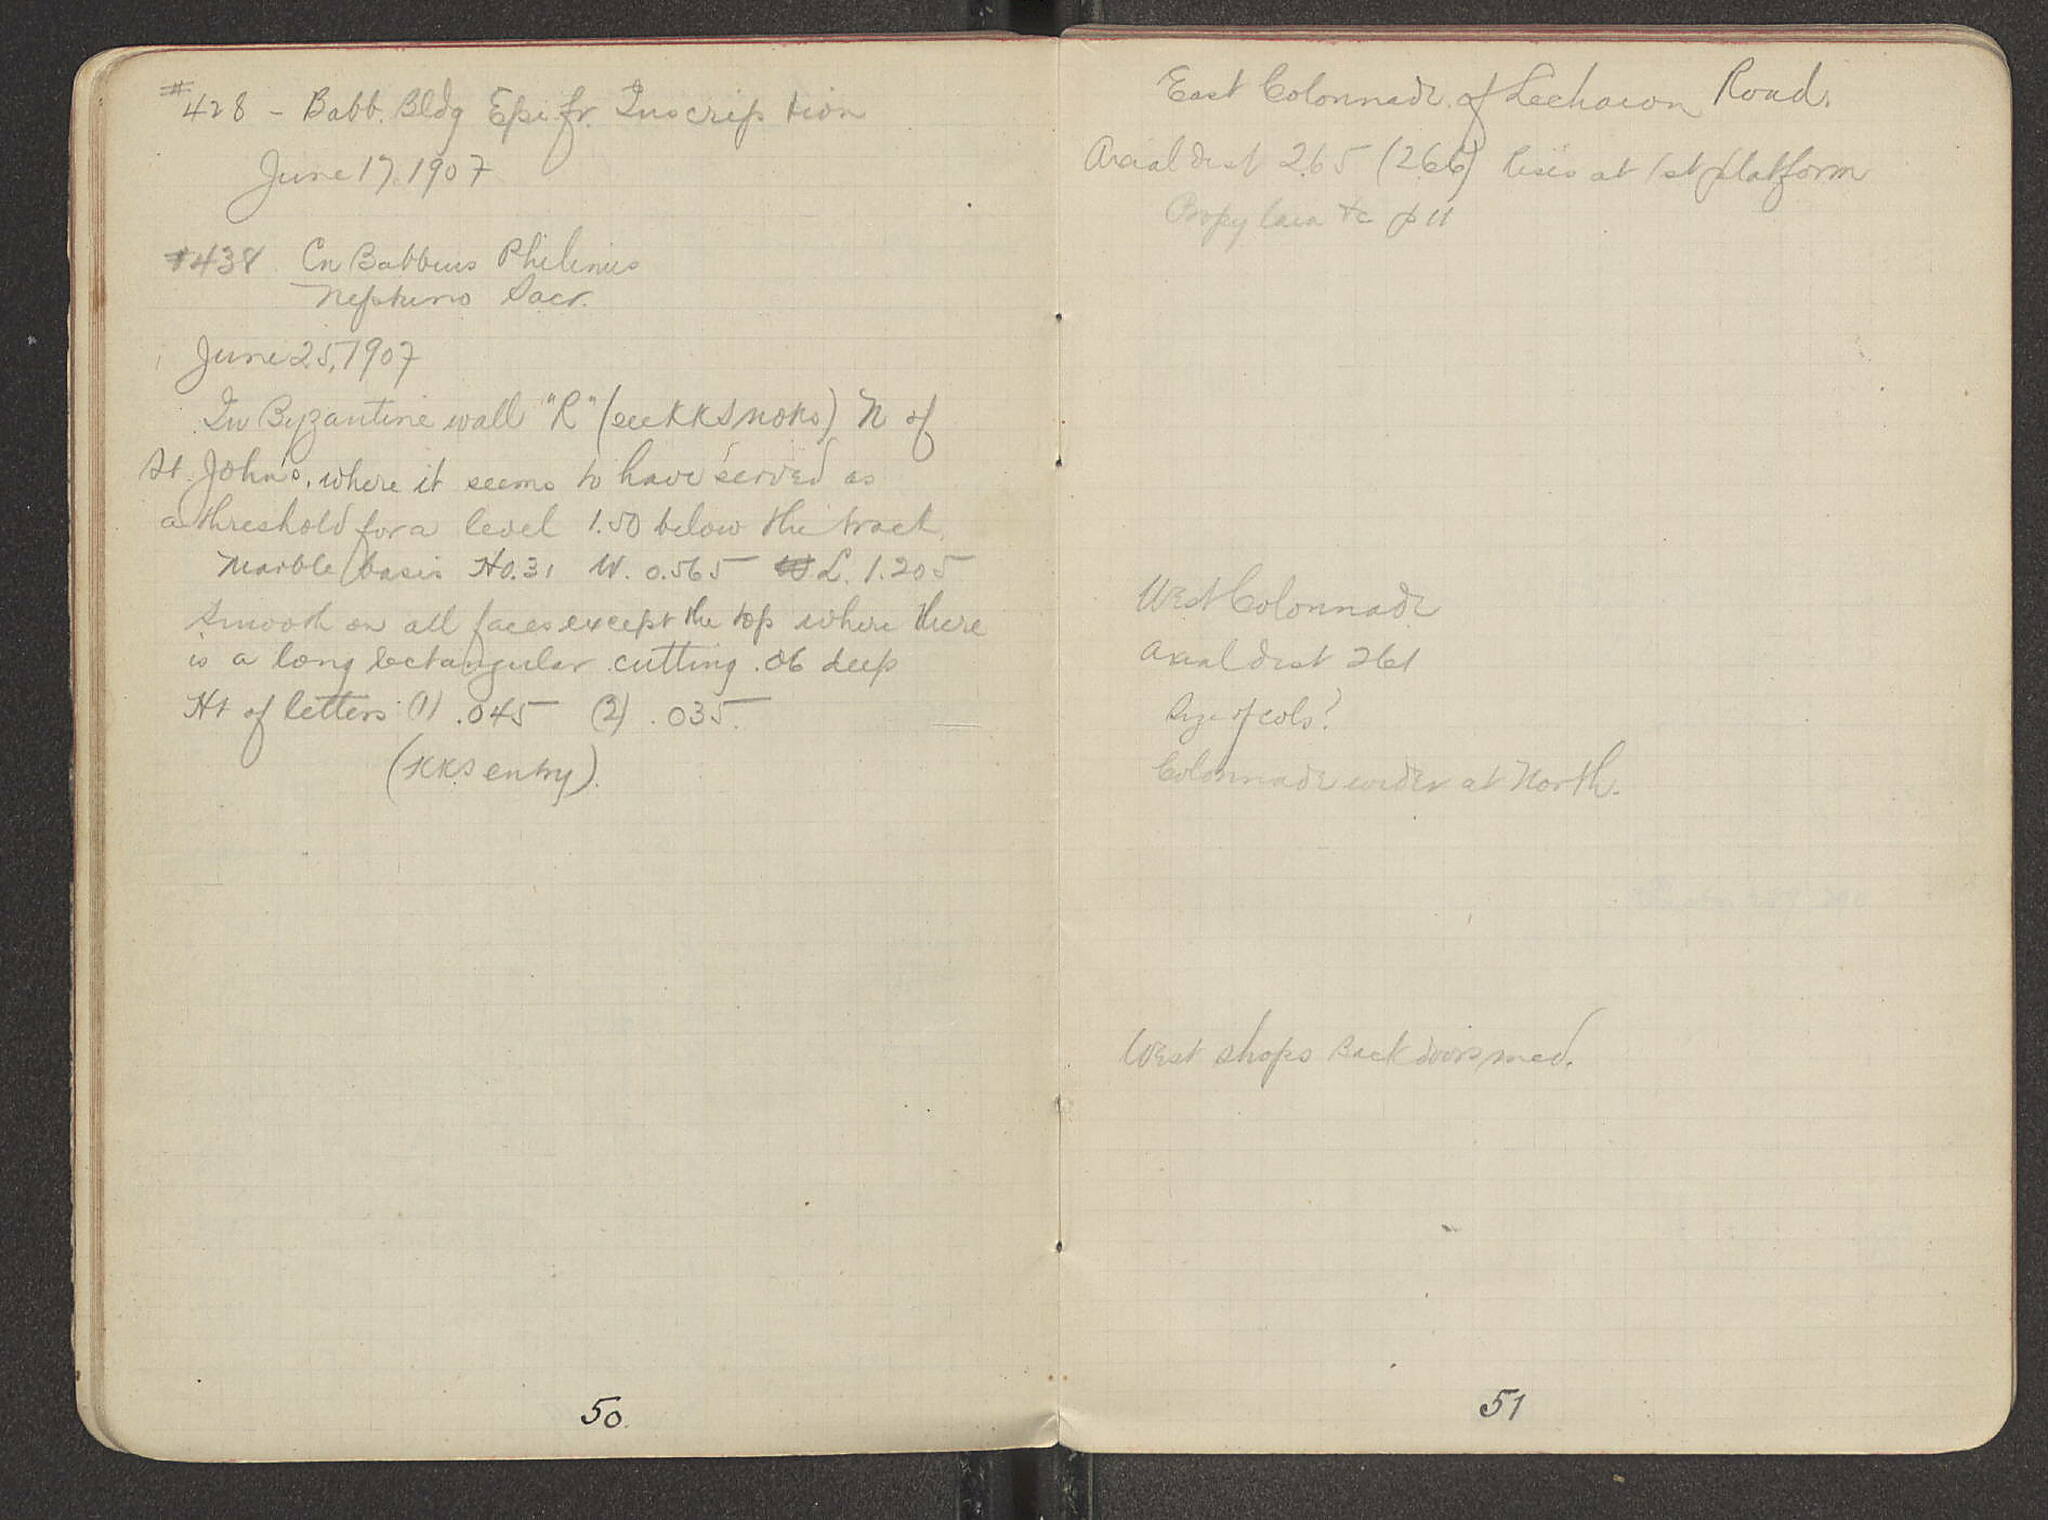 #428 - Babb. Bldg Epi. fr. Inscription
June 17, 1907
#438 Cn Babbius Philinus
Neptuno Sacr.
June 25, 1907
In Byzantine wall "R" (see KKS notes) N of
St. John's, where it seems to have served as
a threshold for a level 1.50 below the track
Marble basis H 0.31 W. 0.565 L. 1.205
Smooth on all faces except the top where there
is a long rectangular cutting .06 deep
Ht of letters (1) .045 (2) .035.
(KKS entry).
50
East Colonnade of Lechaion Road.
Axial dist 2.65 (2.66) rises at 1st platform
Propylaea &c p 11
West Colonnade
Axial dist 261
Size of cols?
Colonnade wider at North.
West shops Back doors med.
51